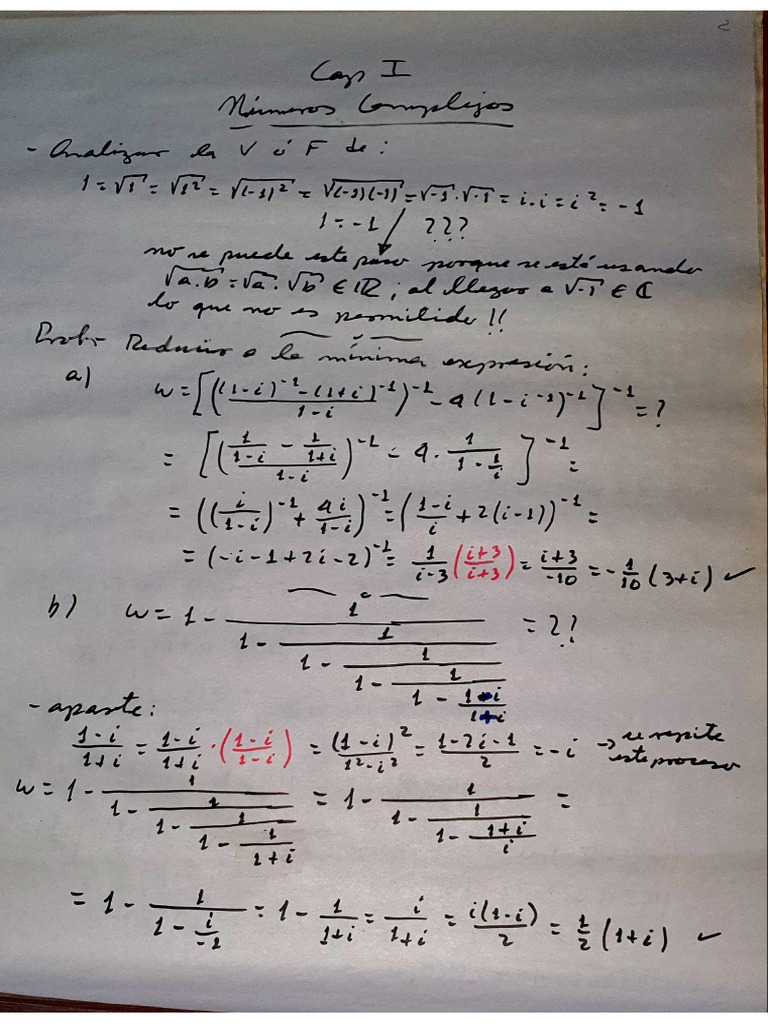 2
Cap I
Números Complejos
- Analizar la V ó F de:
1 = √1 = √1² = √(-1)² = √(-1)(-1) = √-1 · √-1 = i·i = i² = -1
1 = -1 ???
no se puede este paso porque se está usando
√a·b = √a · √b ∈ ℝ ; al llegar a √-1 ∈ ℂ
lo que no es permitido !!
Prob.- Reducir a la mínima expresión:
a) w = [(((1-i)⁻¹ - (1+i)⁻¹)/(1-i))⁻¹ - 4(1-i⁻¹)⁻¹]⁻¹ = ?
= [((1/(1-i) - 1/(1+i))/(1-i))⁻¹ - 4 · 1/(1 - 1/i)]⁻¹ =
= ((i/(1-i))⁻¹ + 4i/(1-i))⁻¹ = ((1-i)/i + 2(i-1))⁻¹ =
= (-i-1+2i-2)⁻¹ = 1/(i-3) ((i+3)/(i+3)) = (i+3)/-10 = -1/10 (3+i) ✓
b) w = 1 - 1/(1 - 1/(1 - 1/(1 - 1/(1 - (1-i)/(1+i))))) = ??
- aparte:
(1-i)/(1+i) = (1-i)/(1+i) · ((1-i)/(1-i)) = (1-i)²/(1²-i²) = (1-2i-1)/2 = -i → se repite
este proceso
w = 1 - 1/(1 - 1/(1 - 1/(1 - 1/(1+i)))) = 1 - 1/(1 - 1/(1 - (1+i)/i)) =
= 1 - 1/(1 - i/-1) = 1 - 1/(1+i) = i/(1+i) = i(1-i)/2 = 1/2 (1+i) ✓